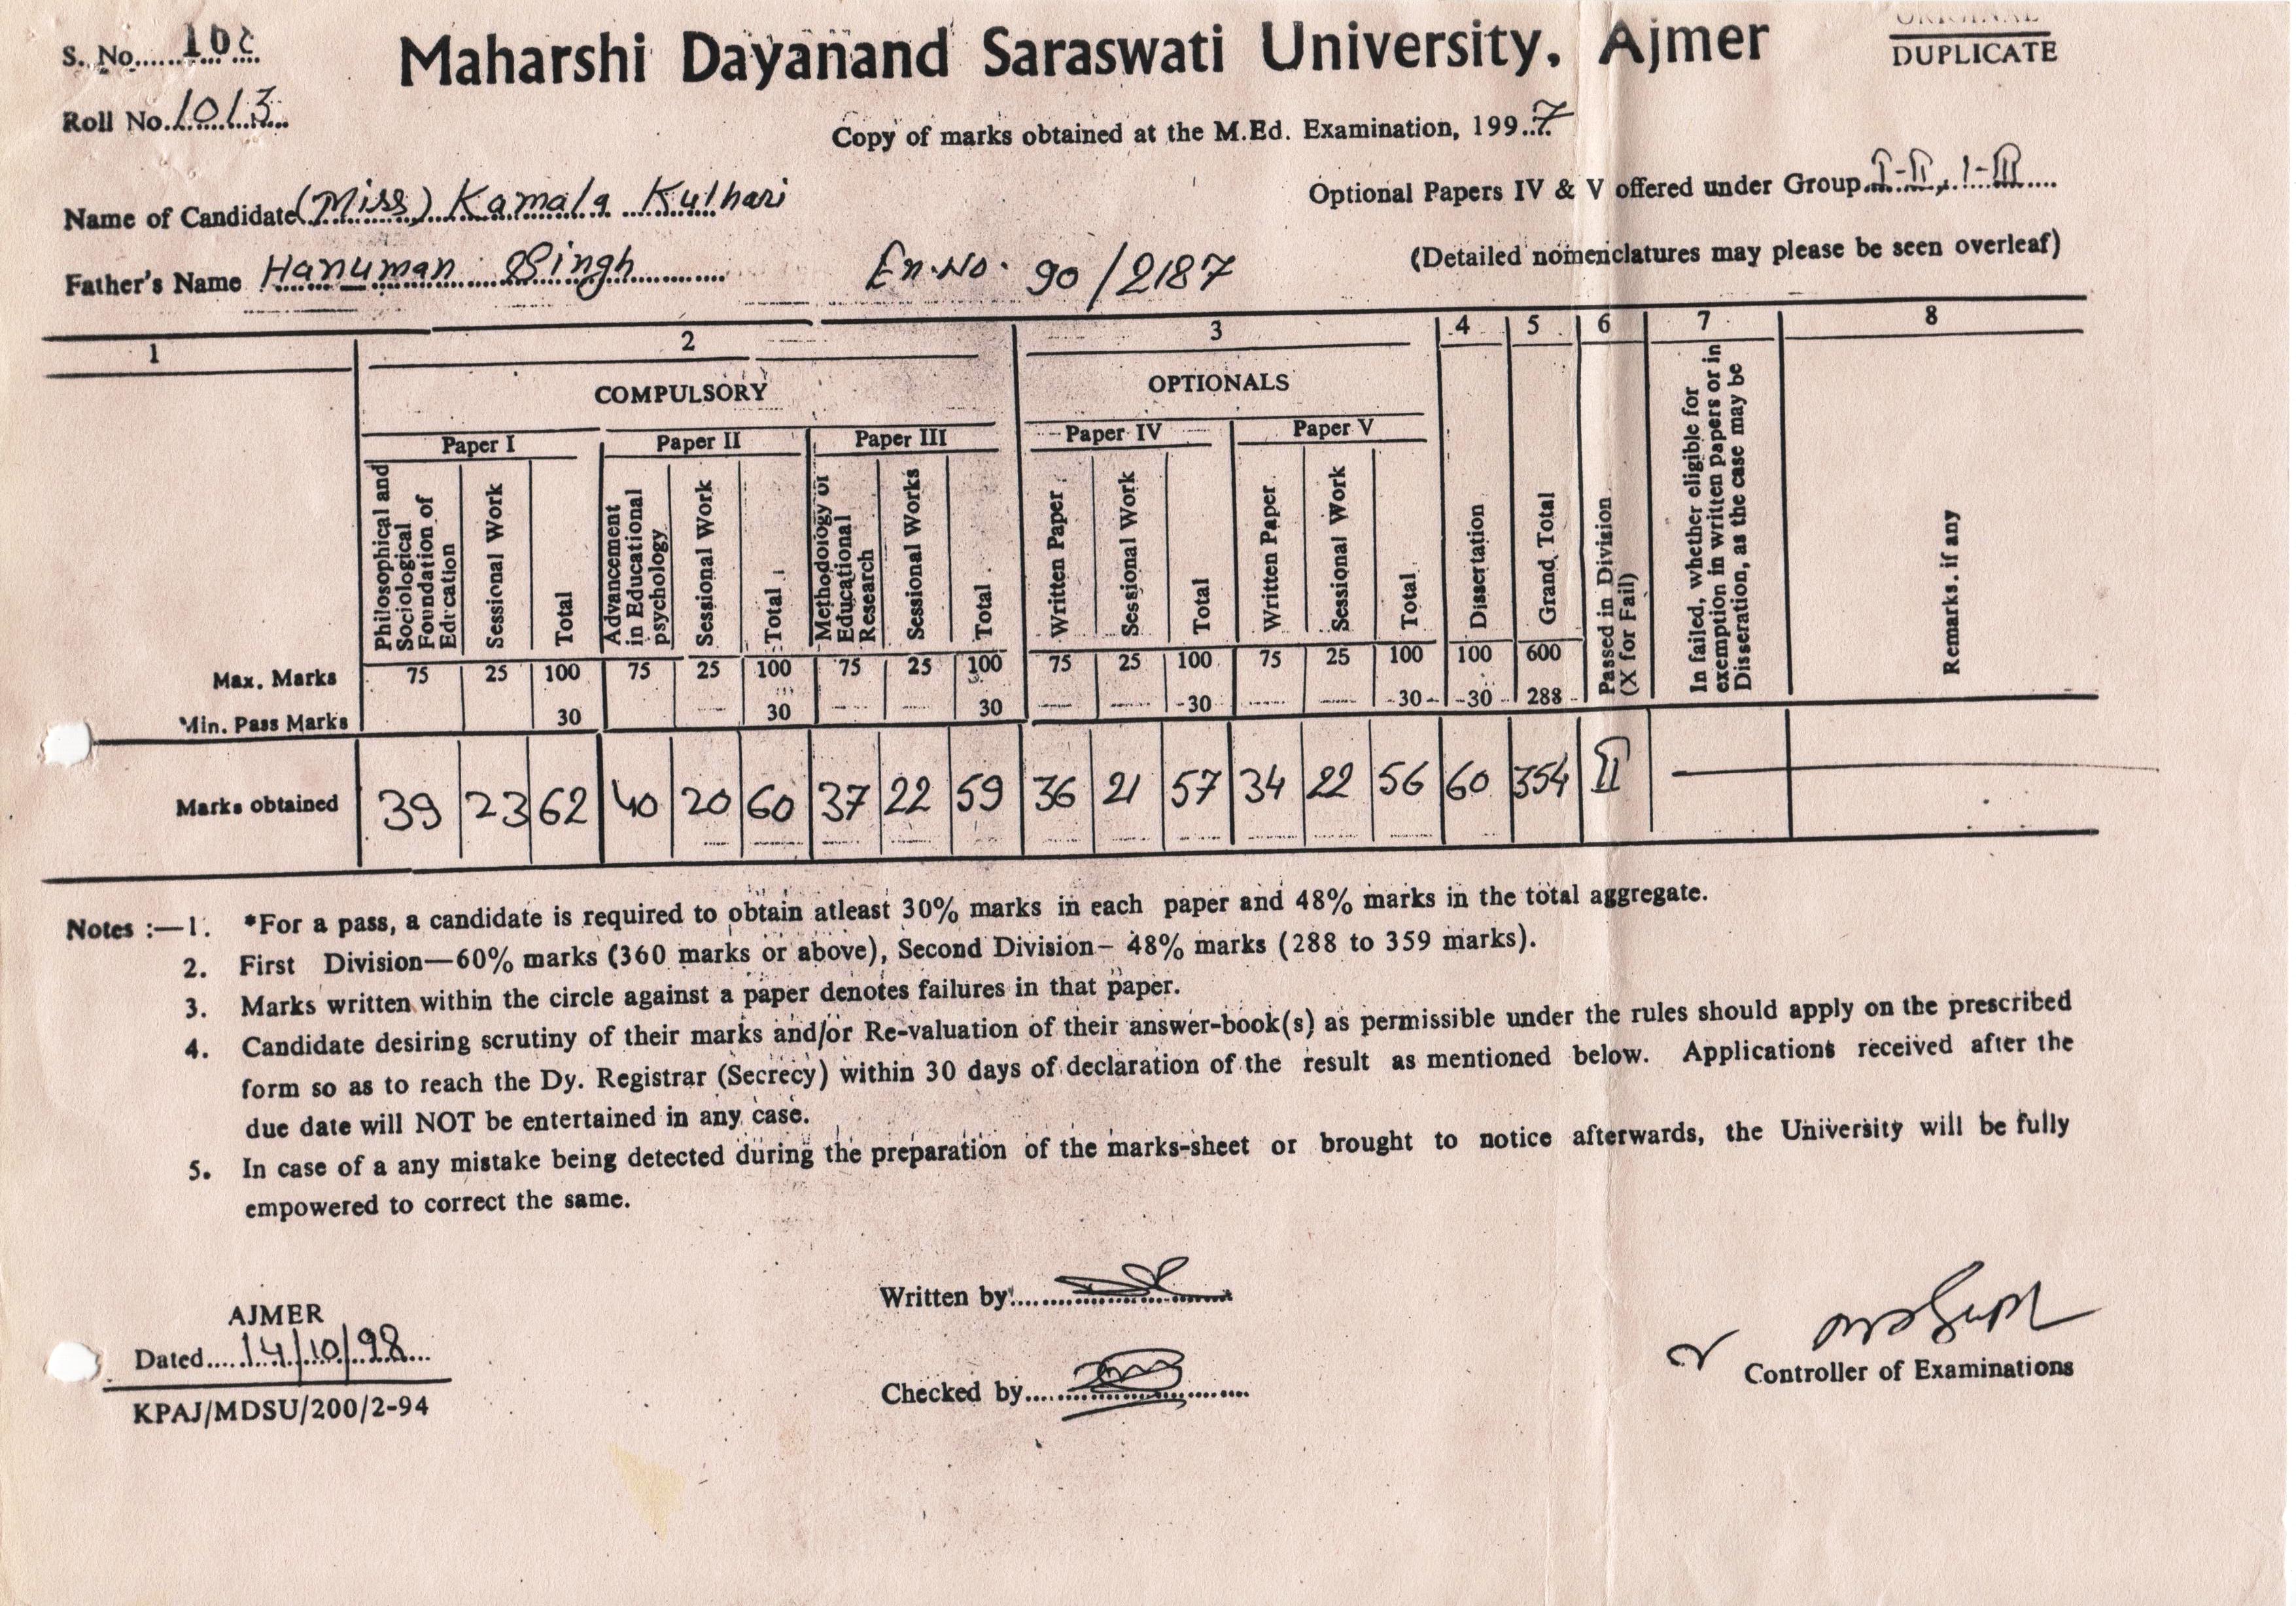 S. No.
ORIGINAL
Maharshi Dayanand Saraswati University, Ajmer
DUPLICATE
Roll No. 1013
Copy of marks obtained at the M.Ed. Examination, 1997
Name of Candidate (Miss) Kamala Kulhari
Optional Papers IV & V offered under Group I-II, I-III
Father's Name Hanuman Singh
En. No. 90/2187
(Detailed nomenclatures may please be seen overleaf)
1 2 3 4 5 6 7 8
COMPULSORY OPTIONALS
Paper I Paper II Paper III Paper IV Paper V
Philosophical and Sociological Foundation of Edrcation
Sessional Work
Total
Advancement in Educational psychology
Sessional Work
Total
Methodology of Educational Research
Sessional Works
Total
Written Paper
Sessional Work
Total
Written Paper
Sessional Work
Total
Dissertation
Grand Total
Passed in Division (X for Fail)
In failed, whether eligible for exemption in written papers or in Disseration, as the case may be
Remarks. if any
Max. Marks 75 25 100 75 25 100 75 25 100 75 25 100 75 25 100 100 600
Min. Pass Marks 30 30 30 30 30 30 288
Marks obtained 39 23 62 40 20 60 37 22 59 36 21 57 34 22 56 60 354 II
Notes :—1. *For a pass, a candidate is required to obtain atleast 30% marks in each paper and 48% marks in the total aggregate.
2. First Division—60% marks (360 marks or above), Second Division– 48% marks (288 to 359 marks).
3. Marks written within the circle against a paper denotes failures in that paper.
4. Candidate desiring scrutiny of their marks and/or Re-valuation of their answer-book(s) as permissible under the rules should apply on the prescribed
form so as to reach the Dy. Registrar (Secrecy) within 30 days of declaration of the result as mentioned below. Applications received after the
due date will NOT be entertained in any case.
5. In case of a any mistake being detected during the preparation of the marks-sheet or brought to notice afterwards, the University will be fully
empowered to correct the same.
Written by
AJMER
Dated 14/10/98
Checked by
Controller of Examinations
KPAJ/MDSU/200/2-94